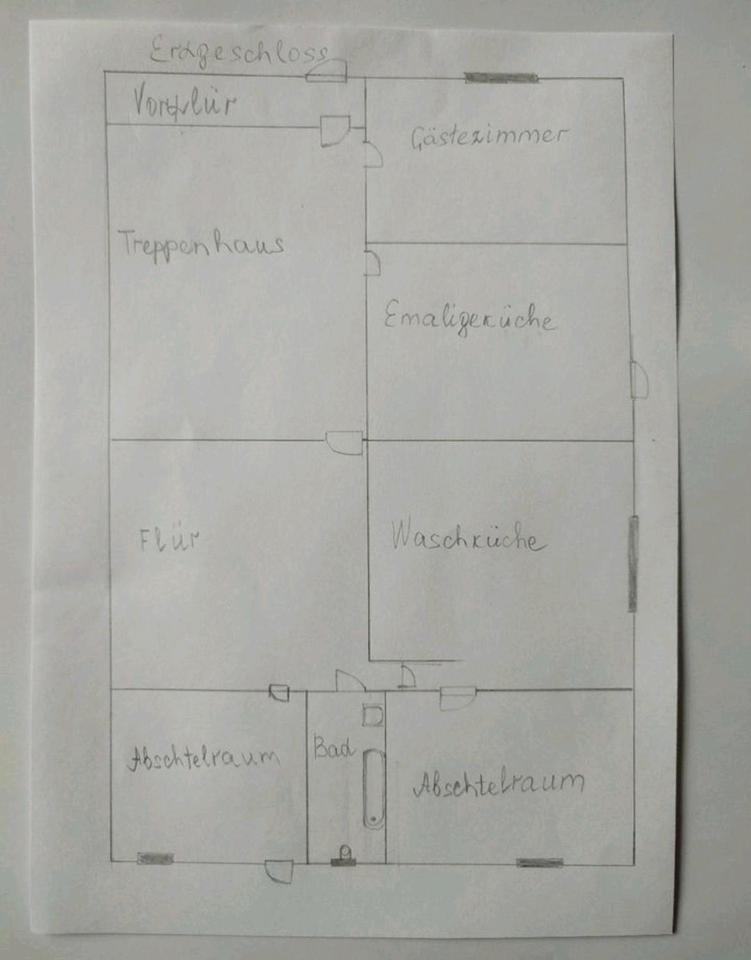 Erdgeschloss
Vorflür
Gästezimmer
Treppenhaus
Emaligeküche
Flür
Waschküche
Abschtelraum
Bad
Abschtelraum